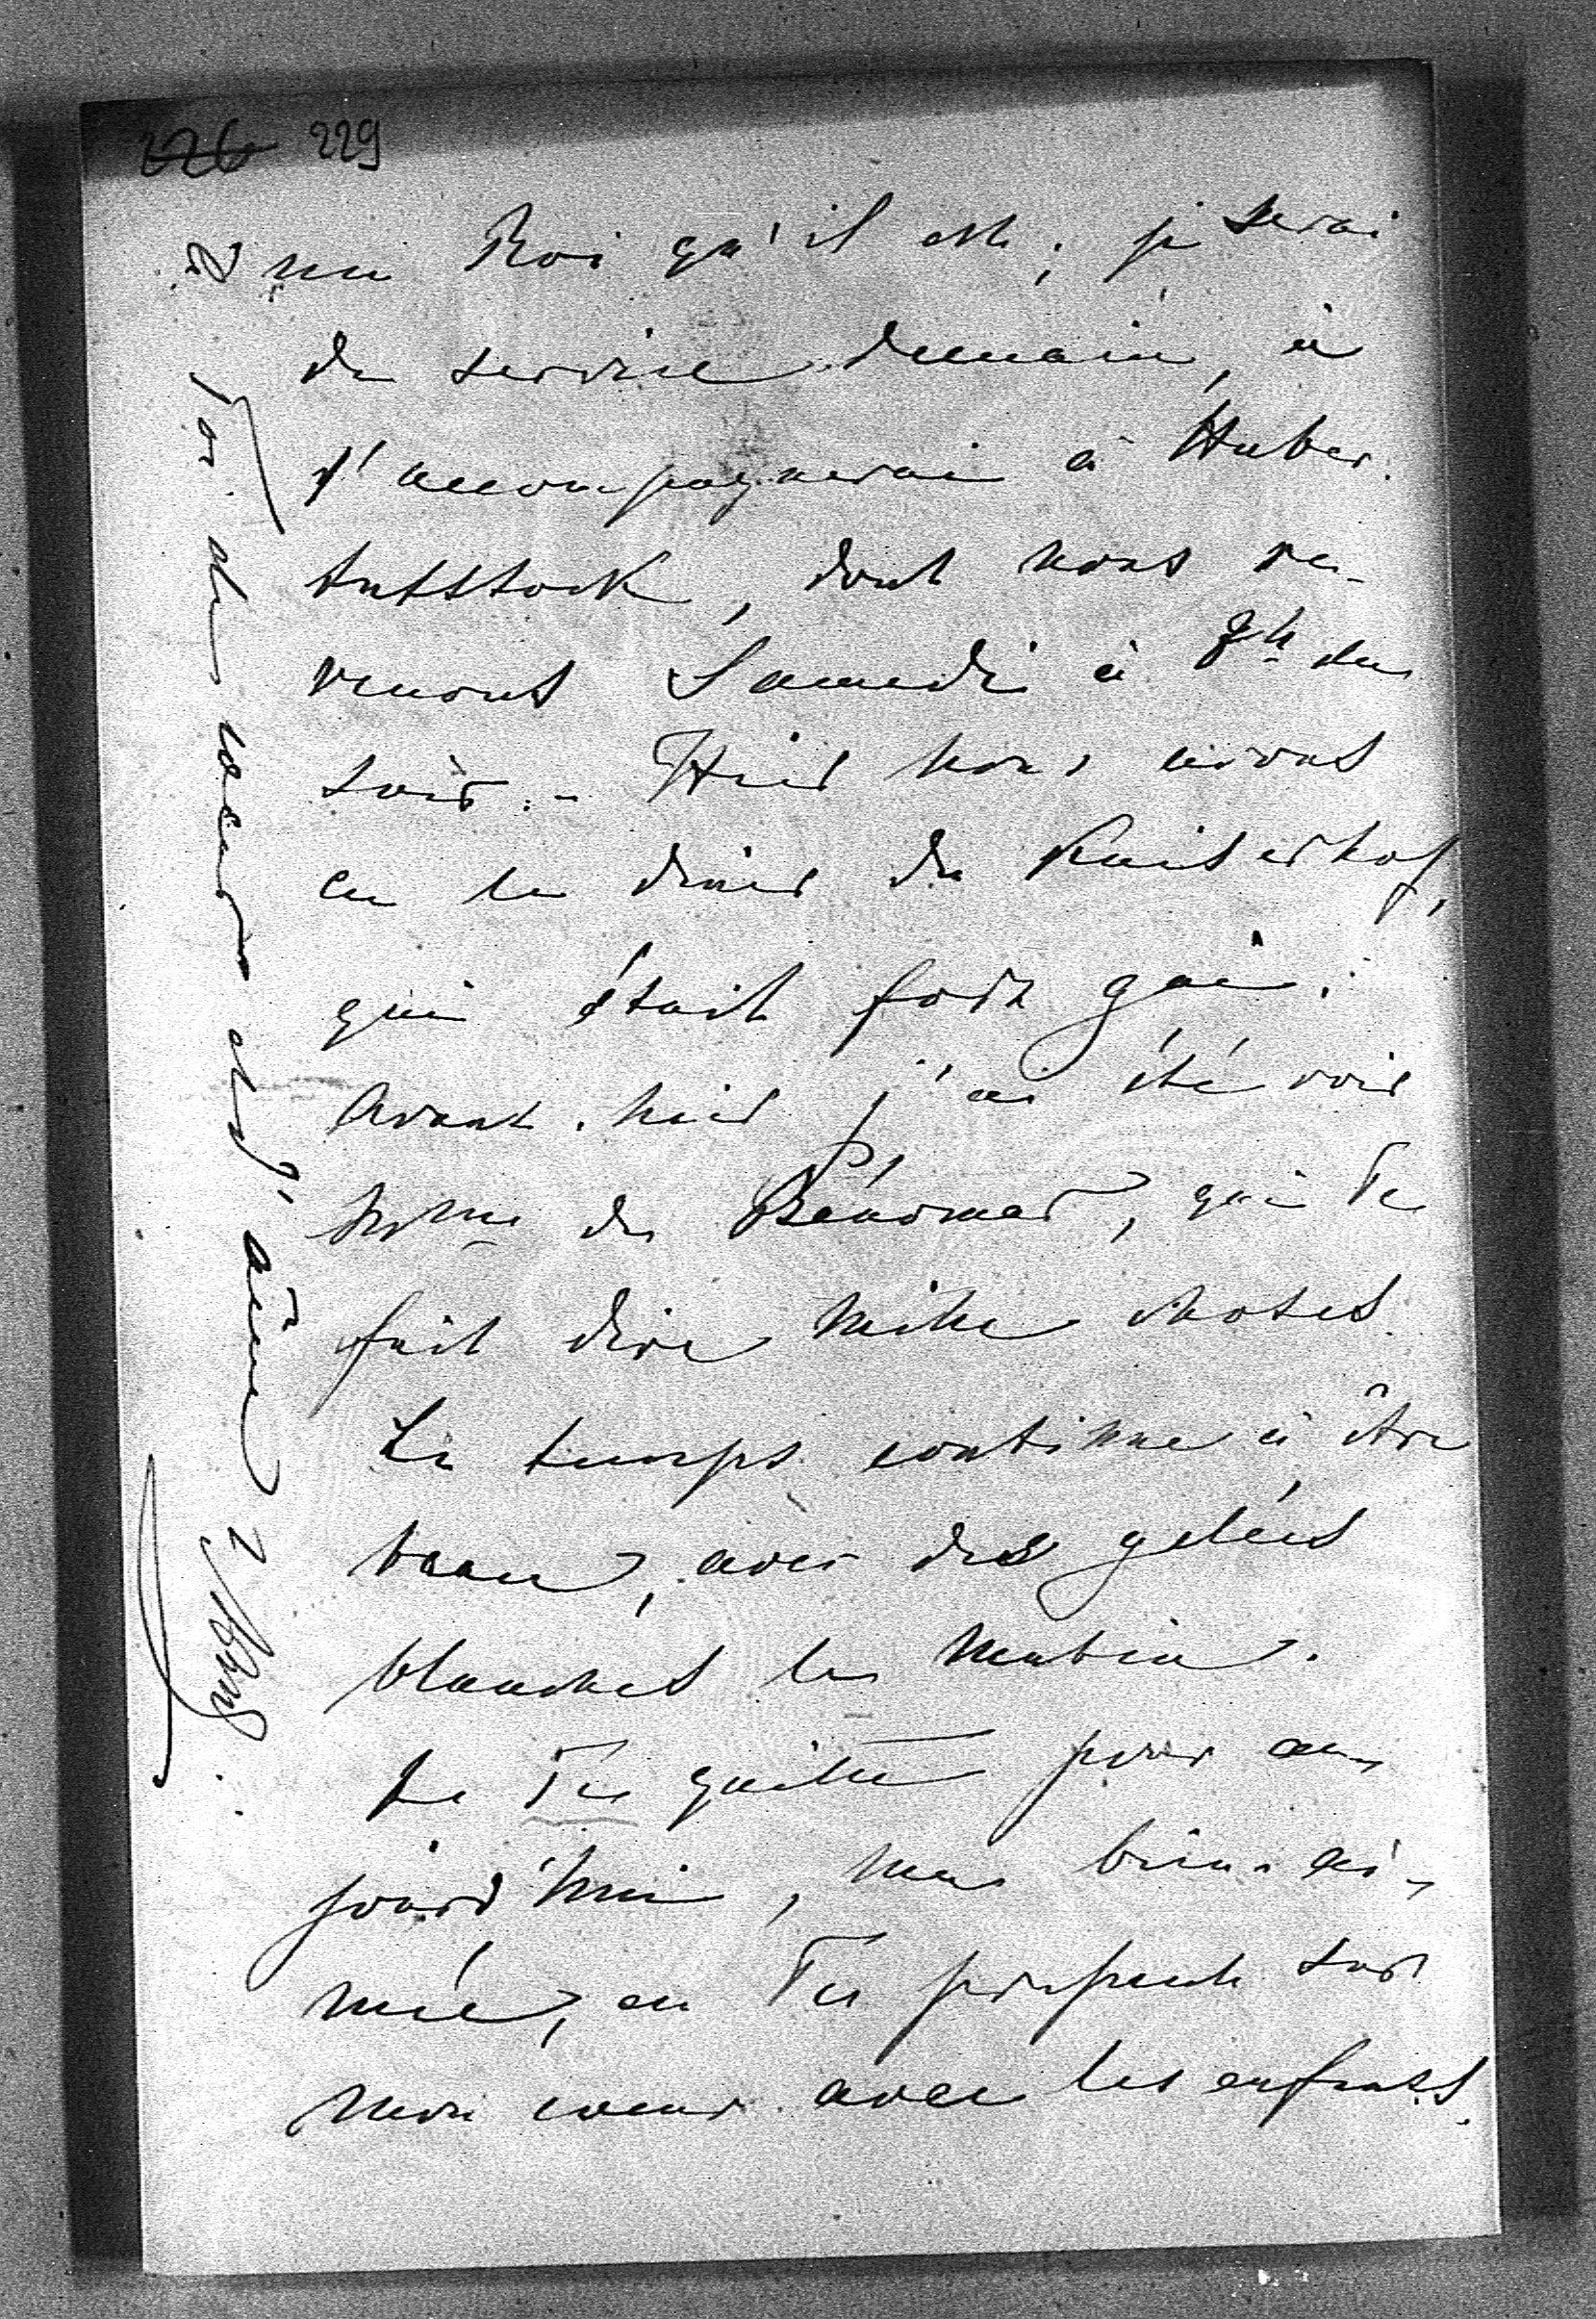 226 229
un Roi qu'il est; je serai
de service demain, &
l'accompagnerai à Huber-
tusstock, dont nous re-
venons Samedi à 8h du
soir. - Hier nous avons
eu le diner du Kaiserhof,
qui était fort gai.
Avant-hier j'ai été voir
Mme de Bénomar, qui Te
fait dire mille choses.
Le temps continue à être
beau, avec des gelées
blanches le matin.
Je Te quitte pour au-
jourd'hui, ma bien-ai-
mée, en Te pressant sur
mon cœur avec les enfants.
à Toi de cœur